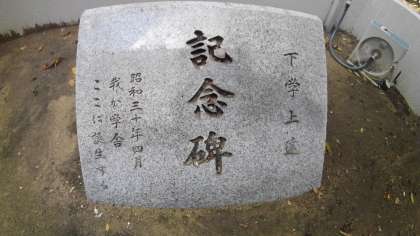 下学上達
記念碑
昭和三十年四月
我が学舎
ここに誕生する